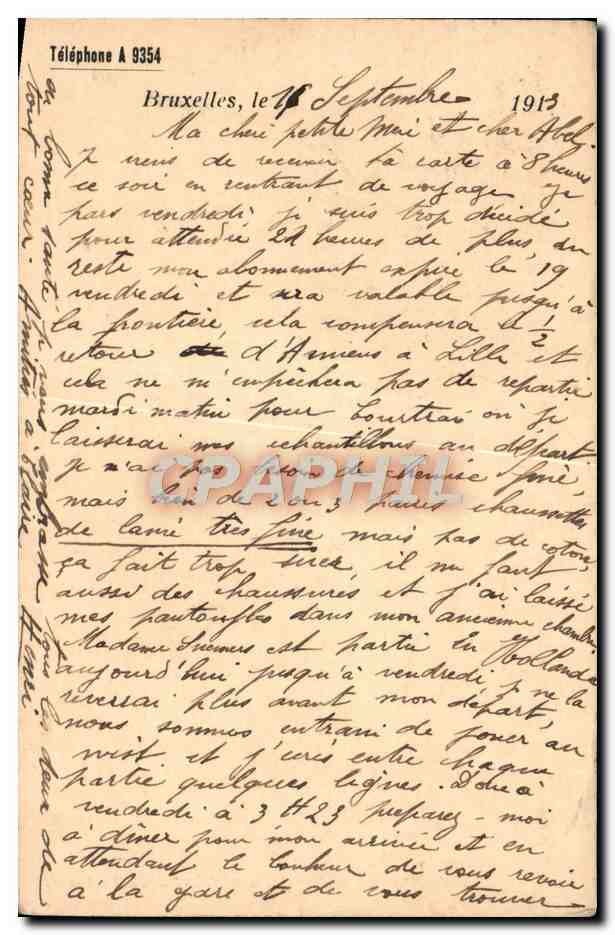 Téléphone A 9354
Bruxelles, le 16 Septembre 1913
Ma chère petite Mimi et cher Abel,
Je viens de recevoir ta carte à 8 heures
ce soir en rentrant de voyage je
pars vendredi je suis trop décidé
pour attendre 24 heures de plus, du
reste mon abonnement expire le 19
vendredi et sera valable jusqu'à
la frontière, cela compensera le 1/2
retour d'Amiens à Lille et
cela ne m'empêchera pas de repartir
mardi matin pour Courtrai où je
laisserai mes échantillons au départ
je n'ai pas besoin de chemise
mais bien de 2 ou 3 paires chaussettes
de laine très fine mais pas de coton,
ça fait trop suer, il me faut
aussi des chaussures et j'ai laissé
mes pantoufles dans mon ancienne chambre
Madame est partie en Hollande
aujourd'hui jusqu'à vendredi, je ne la
reverrai plus avant mon départ,
nous sommes entrain de jouer au
wist et j'écris entre chaque
partie quelques lignes. Donc à
vendredi à 3 H 23 préparez-moi
à dîner pour mon arrivée et en
attendant le bonheur de vous revoir
à la gare et de vous trouver
en bonne santé je vous embrasse tous les deux de
tout cœur. Amitiés à
CPARAPHIL